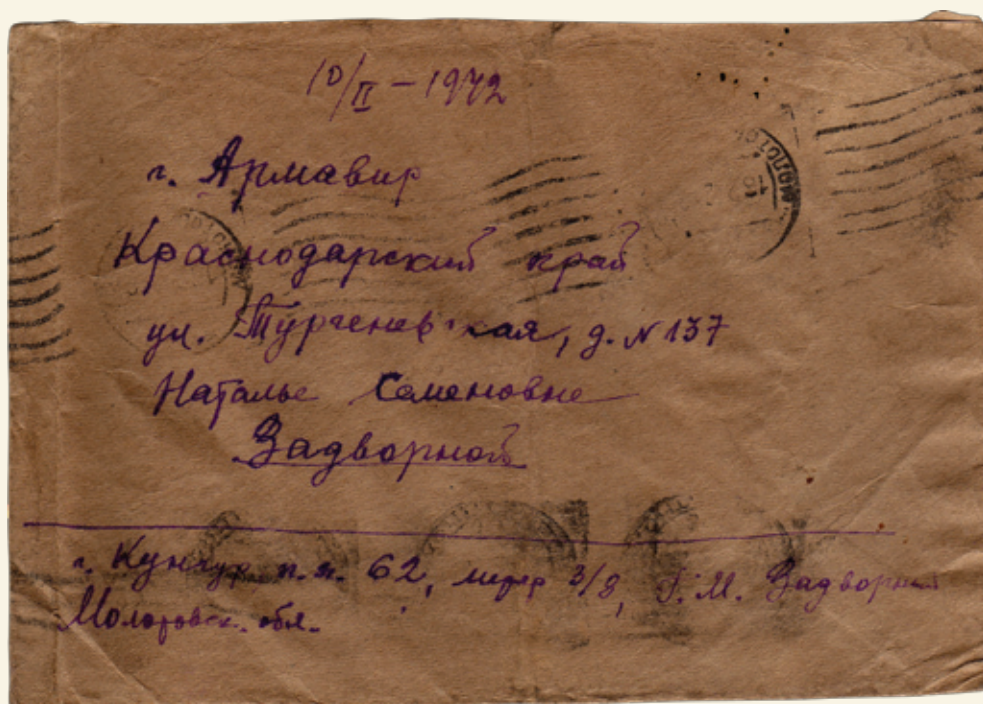 10/II – 1942
МОЛОТО
г. Армавир
Краснодарский край
ул. Тургеневская, д. № 137
Наталье Семеновне
Задворной
г. Кунгур п.я. 62, литер 3/8, Г. М. Задворный
Молотовск. обл.